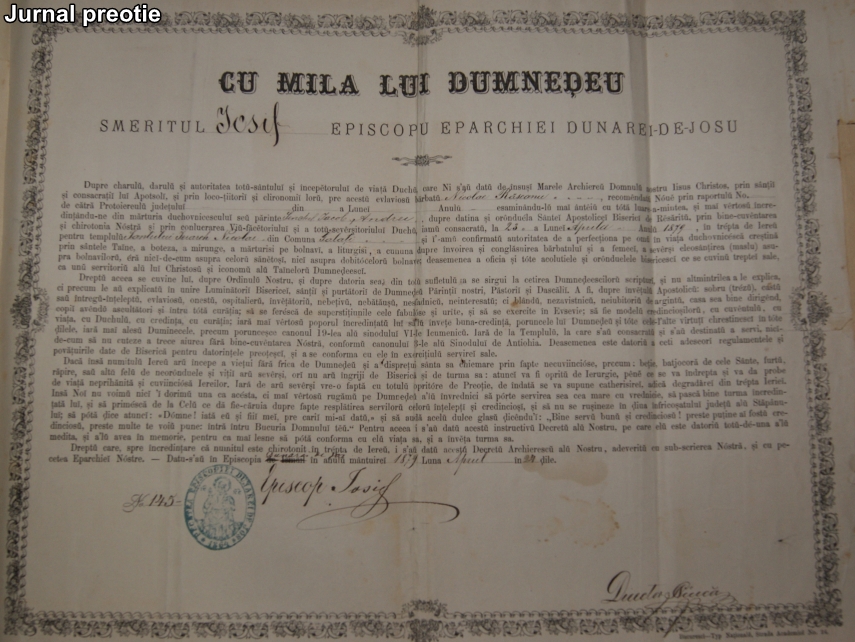 Jurnal preotie
CU MILA LUI DUMNEḐEU
SMERITUL Iosif EPISCOPU EPARCHIEI DUNAREI-DE-JOSU
Dupre charulu, darulŭ și autoritatea totŭ-sântului și începĕtorului de viață Duchŭ, care Ni s'aŭ datŭ de însuși Marele Archiereŭ Domnulŭ nostru Iisus Christos, prin sânții
și consacrații lui Apostoli, și prin loco-țiitorii și clironomii lorŭ, pre acestŭ evlaviosŭ bărbatŭ Nicolae recomendatŭ Nóue prin raportulŭ No.
de cătră Protoiereulŭ județului din a Lunei Anulu examinându-lŭ mai ântêiŭ cu totă luarea-aminte, și mai vêrtosŭ încre-
dințându-ne din mărturia duchovnicescului seŭ părinte Iacob, Andrei, dupre datina și orênduela Sântei Apostolicei Biserici de Rĕsăritŭ, prin bine-cuvêntarea
și chirotonia Nóstră și prin conlucrarea Viă-făcĕtorului și a totŭ-sevêrsitorului Duchŭ, iamŭ consacratŭ, la 23 a Lunei Aprilie Anulŭ 1879, în trépta de Iereŭ
pentru templulŭ Nicolae din Comuna Galati și l'amŭ confirmatŭ autoritatea de a perfecționa pe omŭ în viața duchovnicescă creștină
prin sântele Taine, a boteza, a mirunge, a mărturisi pe bolnavi, a liturgisi, a cununa dupre învoirea și conglăsuirea bărbatului și a femeei, a sevêrși eleosântirea (maslu) asu-
pra bolnavilorŭ, éră nici-de-cum asupra celorŭ sănĕtoși, nici asupra dobitócelorŭ bolnave; deasemenea a oficia și tóte acolutiele și orênduelele bisericesci ce se cuvinŭ treptei sale,
ca unŭ servitoriŭ alŭ lui Christosŭ și iconomŭ alŭ Tainelorŭ Dumneḍeesci.
Dreptŭ aceea se cuvine lui, dupre Ordinulŭ Nostru, și dupre datoria sea, din totŭ sufletulŭ a se sirgui la cetirea Dumneḍeescilorŭ scripturi, și nu almintrilea a le explica,
ci precum le aŭ explicatŭ în unire Luminătorii Bisericei, sânții și purtătorii de Dumneḍeŭ Părinții nostri, Păstorii și Dascălii. A fi, dupre învĕțătura Apostolică: sobru (trézŭ), căstă
saŭ întregŭ-înțeleptŭ, evlaviosŭ, onestŭ, ospitalierŭ, învĕțătoriŭ, nebețivŭ, nebătăușŭ, nesfadnicŭ, neinteresatŭ; ci blândŭ, nezavistnicŭ, neiubitoriŭ de argintŭ, casa sea bine dirigêndŭ,
copii avêndŭ ascultători și întru tótă curăția; să se feréscă de superstițiunile cele fabulóse și urîte, și să se exercite în Evsevie; să fie modelŭ credincioșilorŭ, cu cuvêntulŭ, cu
viața, cu Duchulŭ, cu credința, cu curăția; iară mai vêrtosŭ poporul încredințatŭ lui să-lŭ învețe buna-credință, poruncele lui Dumneḍeŭ și tóte cele-l'alte virtuți clerestinesci în tóte
ḍilele, iară mai alesŭ Duminecele, precum poruncesce canonul 19-lea alŭ sinodului VI-le Iecumenicŭ. Iară de la Templulŭ, la care s'aŭ consacratŭ și s'aŭ destinată a servi, nici-
de-cum să nu cuteze a trece aiurea fără bine-cuvêntarea Nóstră, conformŭ canonului 3-lea alŭ Sinodului de Antiohia. Deasemenea este datoriŭ a ceti adeseori regulamentele și
povățuirile date de Biserică pentru datorințele preoțesci, și a se conforma cu ele în exercițiulŭ servirei sale.
Dacă însă numitulŭ Iereŭ arŭ începe a viețui fără frica de Dumneḍeŭ și a disprețui sânta sa chiemare prin fapte necuviincióse, precum: beție, batjocoră de cele Sânte, furtă,
răpire, saŭ altŭ felŭ de neorênduele și viții arŭ sevêrși, ori nu arŭ îngriji de Biserică și de turma sa: atunci va fi opritŭ de Ierurgie, pênĕ ce se va îndrepta și va da probe
de viață neprihănită și cuviinciósă Iereilor. Iară de arŭ sevêrși vre-o faptă cu totulŭ opritóre de Preoție, de îndată se va supune catherisirei, adică degradărei din trépta Ierei.
Insă Noi nu voimŭ nici 'i dorimŭ una ca acésta, ci mai vêrtosŭ rugămŭ pe Dumneḍeŭ a'lŭ învrednici să pórte servirea sea cea mare cu vrednicie, să pască bine turma încredin-
țată lui, și să priméscă de la Celŭ ce dă fie-căruia dupre fapte resplătirea servilorŭ celorŭ înțelepți și credincioși, și să nu se rușineze în ḍiua înfricoșatului județŭ alŭ Stăpânu-
lui; să pótă ḍice atunci: «Dómne! iată eŭ și fiii mei, pre carii mi-ai dată,» și să auḍă acelŭ dulce glasŭ (ḍicêndu'i): „Bine servŭ bunŭ și credinciosŭ! preste puține ai fostŭ cre-
dinciosŭ, preste multe te voiŭ pune: intră intru Bucuria Domnului tĕŭ.“ Pentru aceea i s'aŭ datŭ acestŭ instructivŭ Decretŭ alŭ Nostru, pe care elŭ este datoriŭ totŭ-dé-una a'lŭ
medita, și a'lŭ avea în memorie, pentru ca mai lesne să pótă conforma cu elŭ viața sa, și a învĕța turma sa.
Dreptŭ care, spre încredințare că numitul este chirotonit în trépta de Iereŭ, i s'aŭ datŭ acestŭ Decretŭ Archierescŭ alŭ Nostru, adeveritŭ cu sub-scrierea Nóstră, și cu pe-
cetea Eparchiei Nóstre. — Datu-s'aŭ în Episcopia în anulŭ mântuirei 1879 Luna April în 24 ḍile.
No 145
Episcop Iosif